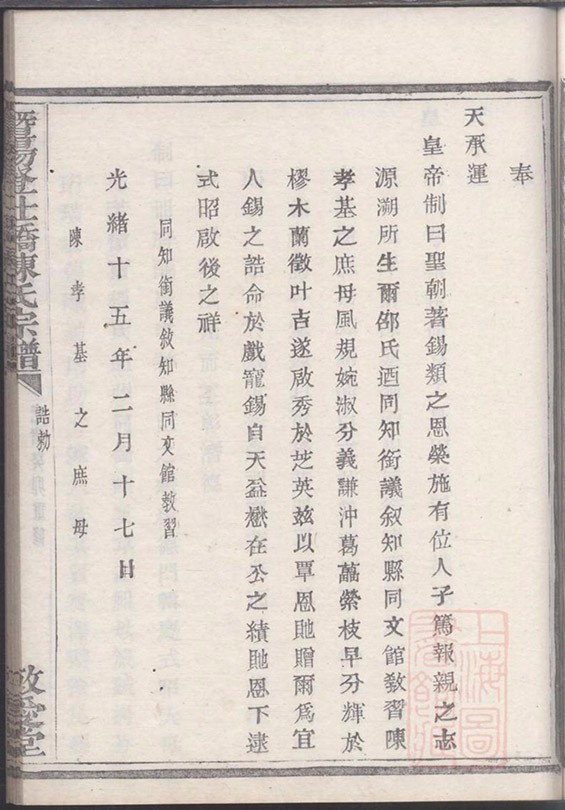 奉
天承運
皇帝制曰聖朝著錫類之恩榮施有位人子篤報親之志
源溯所生爾邵氏迺同知銜議敘知縣同文館教習陳
孝基之庶母風規婉淑分義謙沖葛藟縈枝早分輝於
樛木蘭徵叶吉遂啟秀於芝英茲以覃恩貤贈爾為宜
人錫之誥命於戲寵錫自天益懋在公之績貤恩下逮
式昭啟後之祥
同知銜議敘知縣同文館教習
光緒十五年二月十七日
陳孝基之庶母
暨陽登仕橋陳氏宗譜
誥勅
敬愛堂
上海圖
書館藏